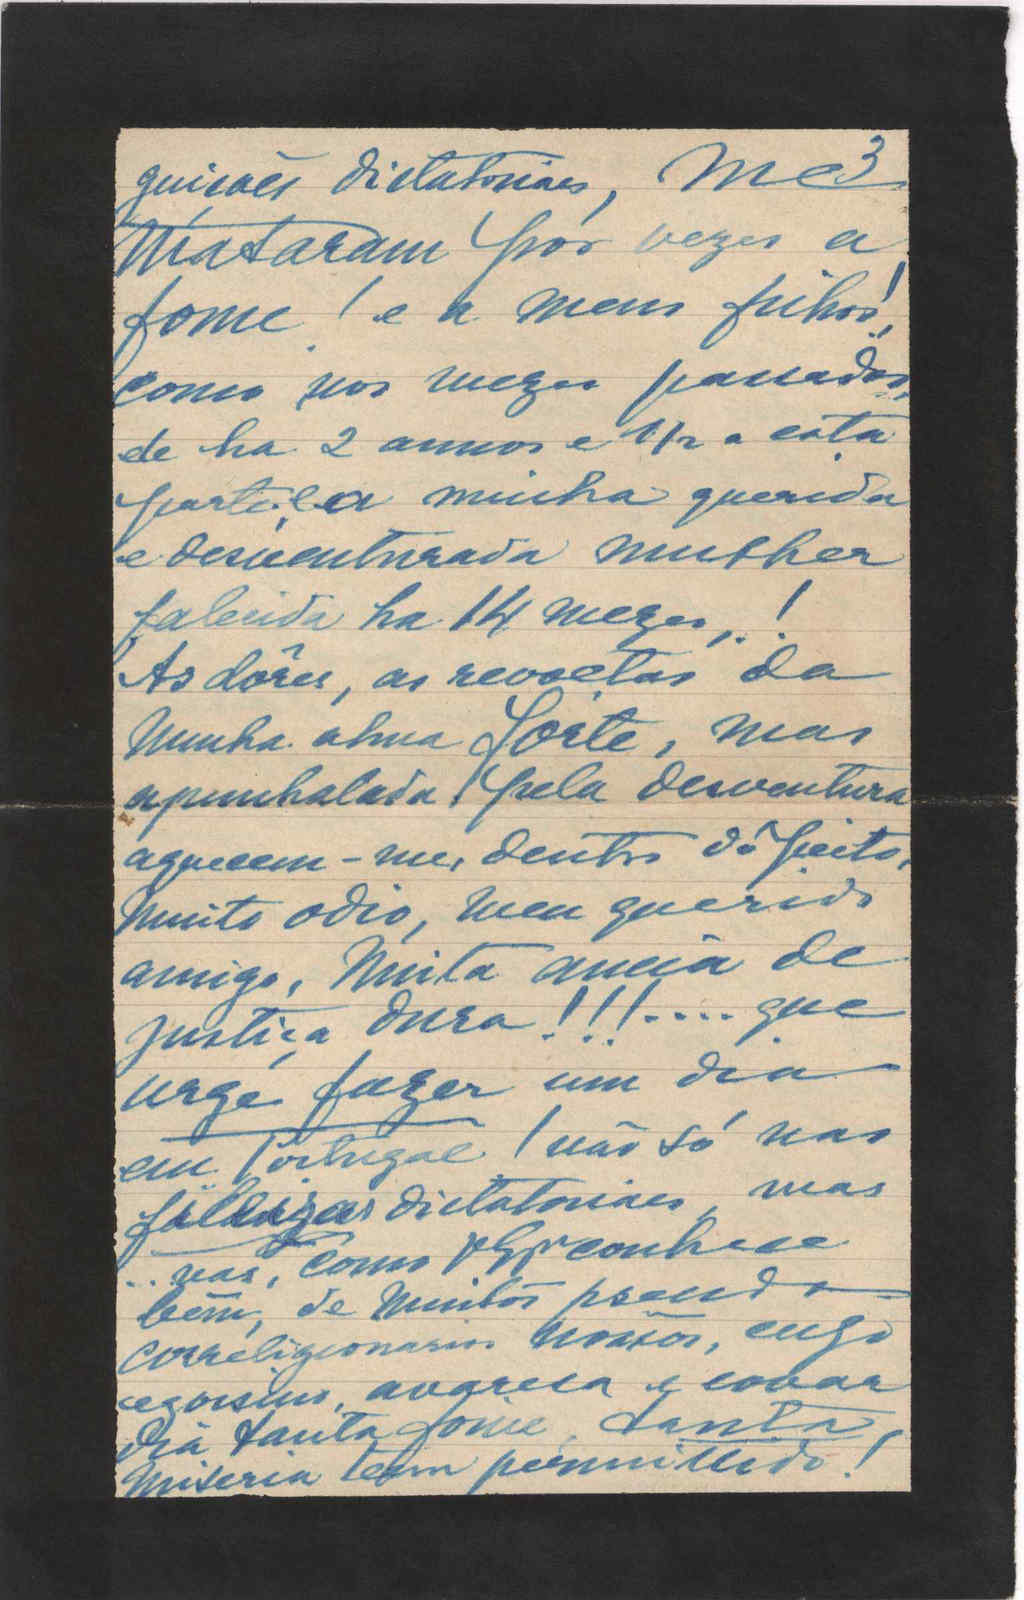 3
guições dictatoriaes, me
mataram por vezes a
fome! e a meus filhos!,
como nos mezes passados,
de ha 2 annos e 1/2 a esta
parte, a minha querida
e desventurada mulher
falecida ha 14 mezes,..!
As dôres, as revoltas da
minha alma forte, mas
apunhalada! pela desventura
aquecem-me, dentro do peito,
muito odio, meu querido
amigo, muita ancia de
justiça dura!!!.... que
urge fazer um dia
em Portugal! não só nas
dictatoriaes, mas
.. nas, como conhece
bem, de muitos pseudo
correligionarios nossos, cujo
egoismo, avareza e covar
dia tanta fome, tanta
miseria tem permittido!